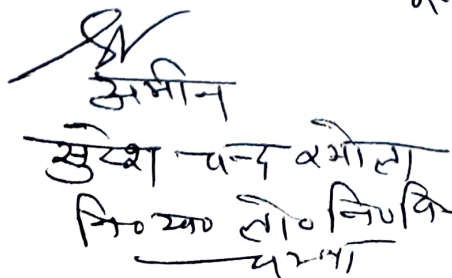 अमीन
सुरेश चन्द रमोला
नि० ख० लो० नि० वि
चम्बा